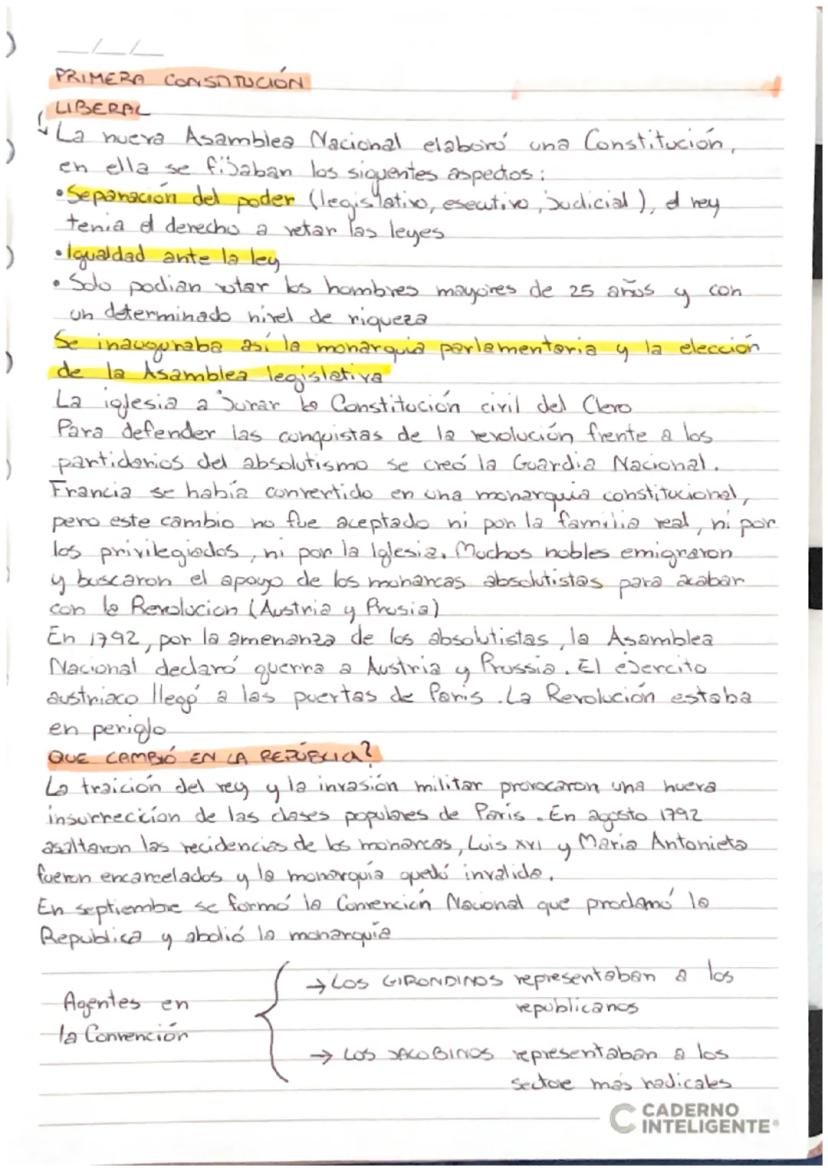 __/__/__
PRIMERA CONSTITUCIÓN
LIBERAL
La nueva Asamblea Nacional elaboró una Constitución,
en ella se fijaban los siguentes aspectos:
• Separación del poder (legislativo, esecutivo, judicial), el rey
tenia el derecho a vetar las leyes
• Igualdad ante la ley
• Solo podian votar los hombres mayores de 25 años y con
un determinado nivel de riqueza
Se inauguraba así la monarquia parlamentaria y la elección
de la Asamblea legislativa
La iglesia a jurar la Constitución civil del Clero
Para defender las conquistas de la revolución frente a los
partidarios del absolutismo se creó la Guardia Nacional.
Francia se había convertido en una monarquia constitucional,
pero este cambio no fue aceptado ni por la familia real, ni por
los privilegiados, ni por la Iglesia. Muchos nobles emigraron
y buscaron el apoyo de los monarcas absolutistas para acabar
con la Revolucion (Austria y Prusia)
En 1792, por la amenanza de los absolutistas, la Asamblea
Nacional declaró guerra a Austria y Prussia. El ejercito
austriaco llegó a las puertas de Paris. La Revolución estaba
en periglo
QUE CAMBIÓ EN LA REPÚBLICA?
La traición del rey y la invasión militar provocaron una nueva
insurrección de las clases populares de París. En agosto 1792
asaltaron las recidencias de los monarcas, Luis XVI y Maria Antonieta
fueron encarcelados y la monarquía quedó invalida.
En septiembre se formó la Convención Nacional que proclamó la
Republica y abolió la monarquía
Agentes en
la Convención
→ LOS GIRONDINOS representaban a los
republicanos
→ LOS JACOBINOS representaban a los
sectore más radicales
CADERNO
INTELIGENTE®